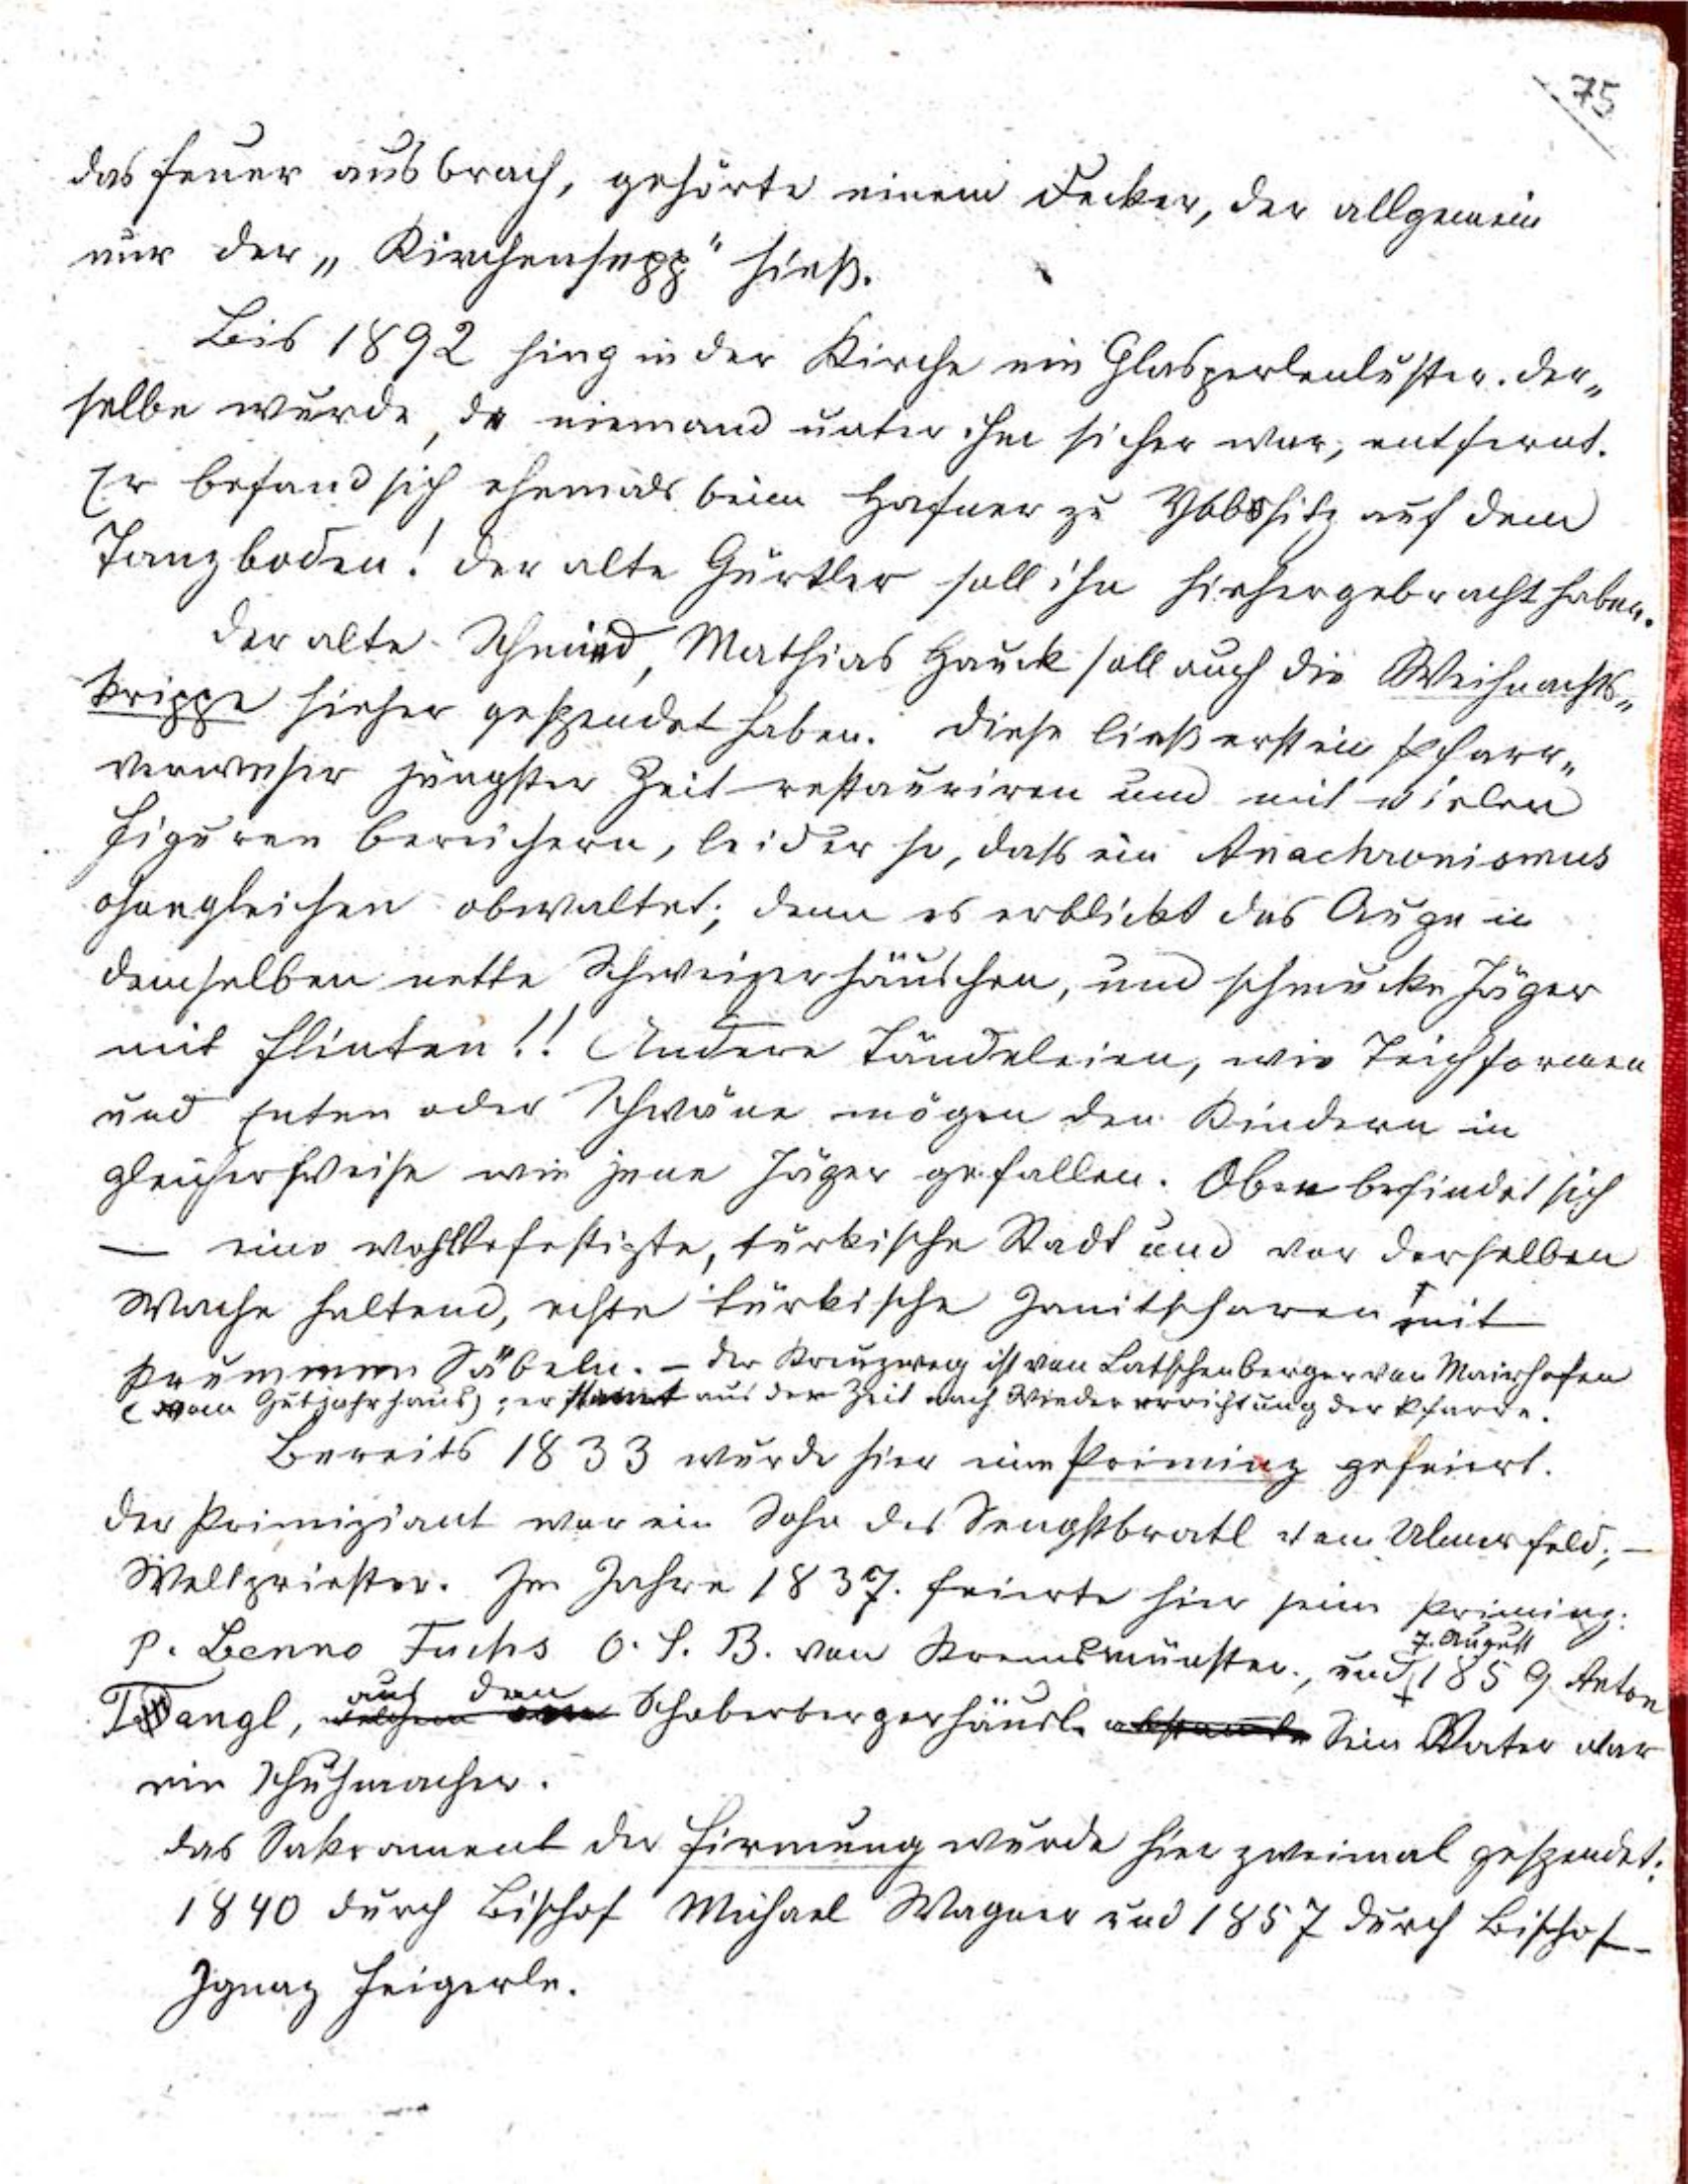 75
das Feuer ausbrach, gehörte einem Decker, der allgemein
nur der „Kirchensepp" hieß.
Bis 1892 hing in der Kirche ein Glasperlenluster. Der„
selbe wurde, da niemand unter ihm sicher war, entfernt.
Er befand sich ehemals beim Hafner zu Ybbssitz auf dem
Tanzboden! Der alte Gürtler soll ihn hiehergebracht haben.
Der alte Schmied, Mathias Hauck soll auch die Weihnachts„
krippe hieher gespendet haben. Diese ließ erst ein Pfarr„
verweser jüngster Zeit restauriren und mit vielen
Figuren bereichern, leider so, daß ein Anachronismus
ohnegleichen obwaltet; denn es erblickt das Auge in
demselben nette Schweizerhäuschen, und schmucke Jäger
mit Flinten!! Andere Tändeleien, wie Teichformen
und Enten oder Schwäne mögen den Kindern in
gleicherweise wie jene Jäger gefallen. Oben befindet sich
— eine wohlbefestigte, türkische Stadt und vor derselben
Wache haltend, echte türkische Janitscharen mit
krummen Säbeln. – Der Kreuzweg ist von Latschenberger von Mairhofen
(vom Gutjahrhaus); er stamt aus der Zeit nach Wiedererrichtung der Pfarre.
Bereits 1833 wurde hier eine Primiz gefeiert.
Der Primiziant war ein Sohn des Sengstbratl von Ulmerfeld; –
Weltpriester. Im Jahre 1837. feierte hier seine Primiz:
7. August
P. Benno Fuchs O. S. B. von Kremsmünster., und 1859 Anton
aus dem
Tangl, welchem Schoberbergerhäusl. abstamte Sein Vater war
ein Schuhmacher.
Das Sakrament der Firmung wurde hier zweimal gespendet:
1840 durch Bischof Michael Wagner und 1857 durch Bischof
Ignaz Feigerle.